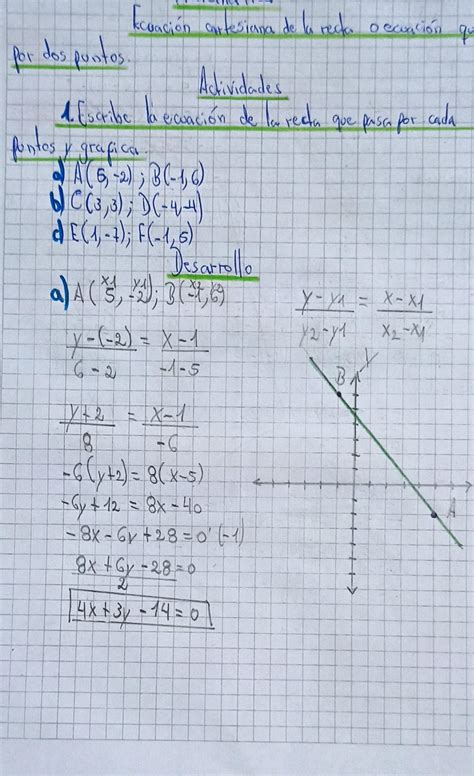 Ecuación cartesiana de la recta o ecuación qu
por dos puntos.
Actividades
1. Escribe la ecuación de la recta que pasa por cada
puntos y grafica.
a) A(5,-2); B(-1,6)
b) C(3,3); D(-4,-4)
d) E(1,-7); F(-1,5)
Desarrollo
x1 y1
a) A(5,-2); B(-1,6)
y-y1 = x-x1
y2-y1 x2-x1
y-(-2) = x-1
6-2 -1-5
Y
B
y+2 = x-1
8 -6
-6(y+2)=8(x-5)
A
-6y+12=8x-40
-8x-6y+28=0 (-1)
8x+6y-28=0
2
4x+3y-14=0